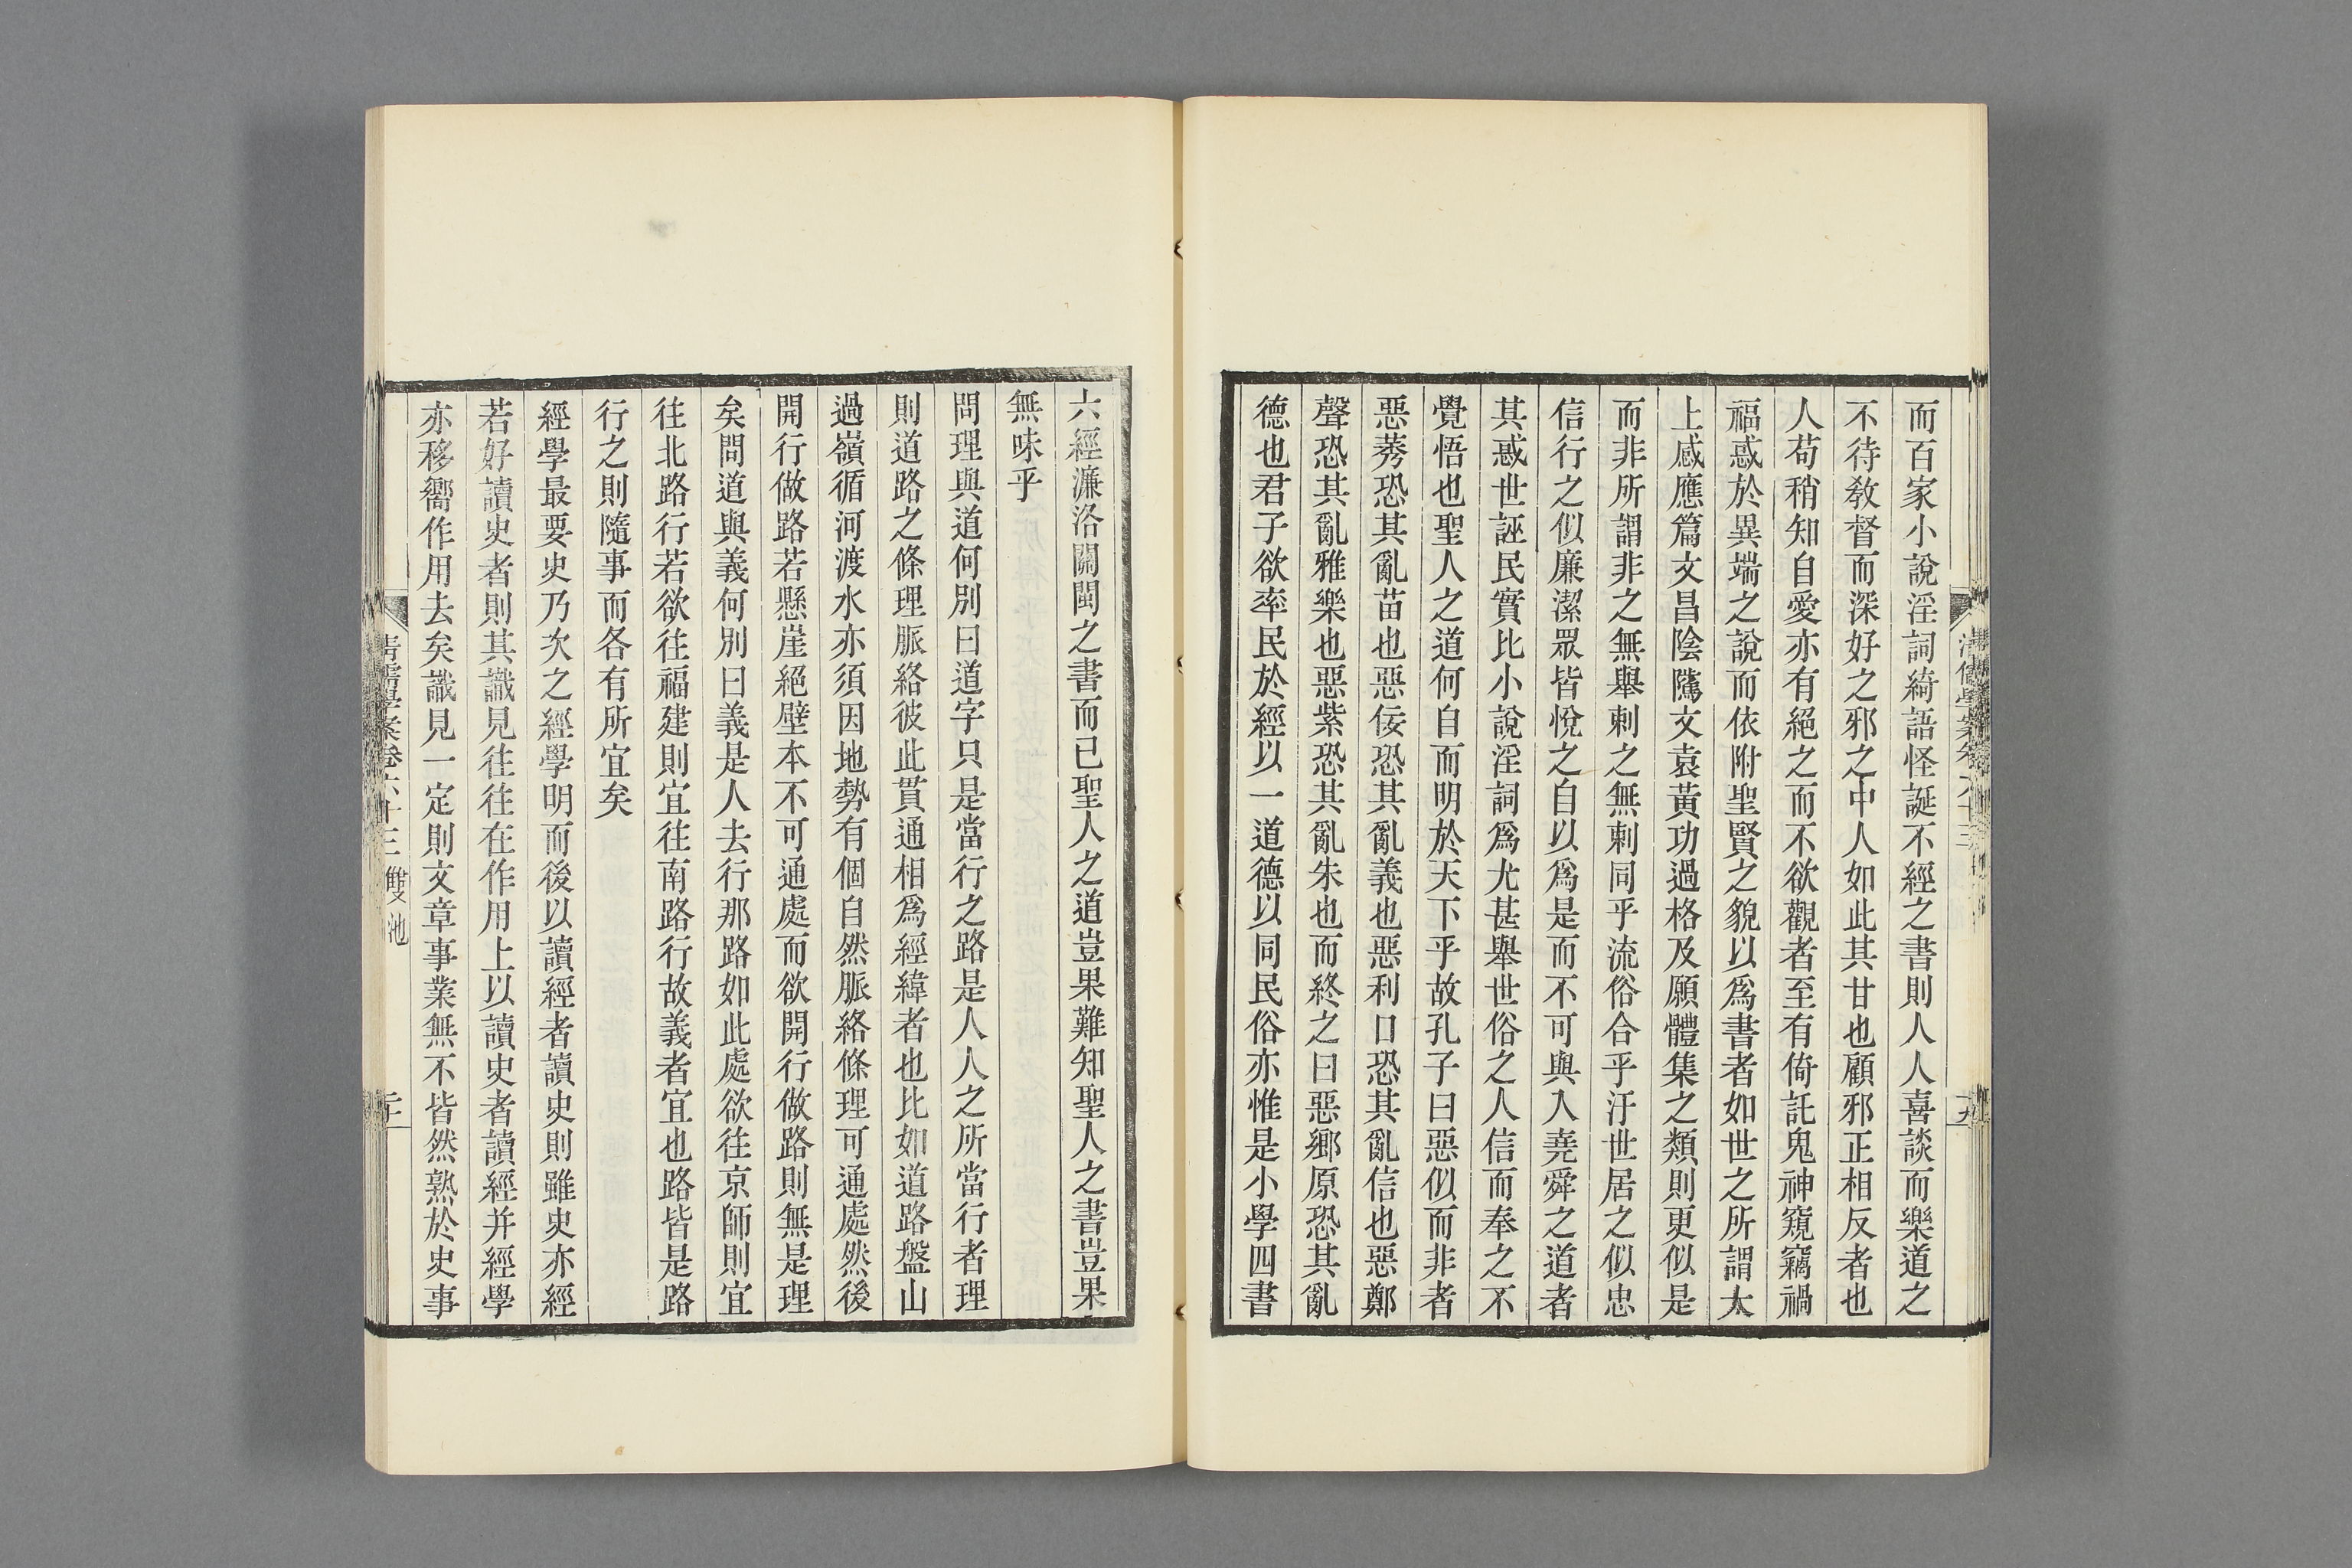 而百家小說淫詞綺語怪誕不經之書則人人喜談而樂道之
不待敎督而深好之邪之中人如此其甘也顧邪正相反者也
人苟稍知自愛亦有絕之而不欲觀者至有倚託鬼神窺竊禍
福惑於異端之說而依附聖賢之貌以爲書者如世之所謂太
上感應篇文昌陰騭文袁黃功過格及願體集之類則更似是
而非所謂非之無舉刺之無刺同乎流俗合乎汙世居之似忠
信行之似廉潔眾皆悅之自以爲是而不可與入堯舜之道者
其惑世誣民實比小說淫詞爲尤甚舉世俗之人信而奉之不
覺悟也聖人之道何自而明於天下乎故孔子曰惡似而非者
惡莠恐其亂苗也惡佞恐其亂義也惡利口恐其亂信也惡鄭
聲恐其亂雅樂也惡紫恐其亂朱也而終之曰惡鄉原恐其亂
德也君子欲率民於經以一道德以同民俗亦惟是小學四書
六經濂洛關閩之書而已聖人之道豈果難知聖人之書豈果
無味乎
問理與道何別曰道字只是當行之路是人人之所當行者理
則道路之條理脈絡彼此貫通相爲經緯者也比如道路盤山
過嶺循河渡水亦須因地勢有個自然脈絡條理可通處然後
開行做路若懸崖絕壁本不可通處而欲開行做路則無是理
矣問道與義何別曰義是人去行那路如此處欲往京師則宜
往北路行若欲往福建則宜往南路行故義者宜也路皆是路
行之則隨事而各有所宜矣
經學最要史乃次之經學明而後以讀經者讀史則雖史亦經
若好讀史者則其識見往往在作用上以讀史者讀經并經學
亦移嚮作用去矣識見一定則文章事業無不皆然熟於史事
清儒學案卷六十三 雙池